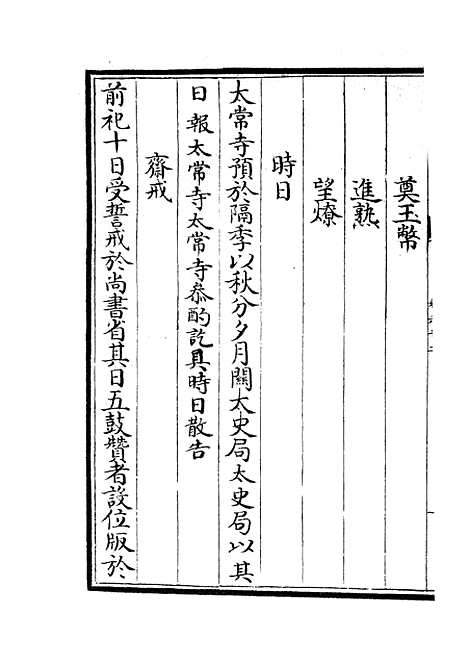 奠玉幣
進熟
望燎
時日
太常寺預於隔季以秋分夕月關太史局太史局以其
日報太常寺太常寺叅酌訖具時日散告
齋戒
前祀十日受誓戒於尚書省其日五鼓贊者設位版於